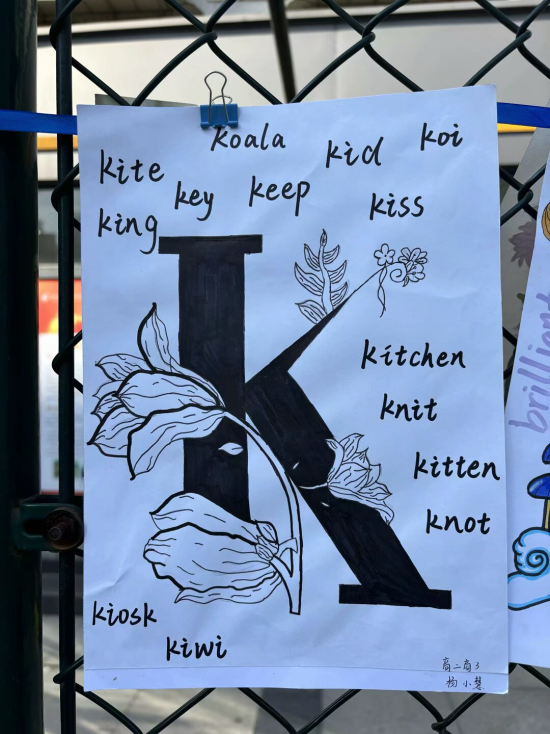 koala
kid
koi
kite
key
keep
kiss
king
K
kitchen
knit
kitten
knot
kiosk
kiwi
商二商3
杨小慧
brilliant